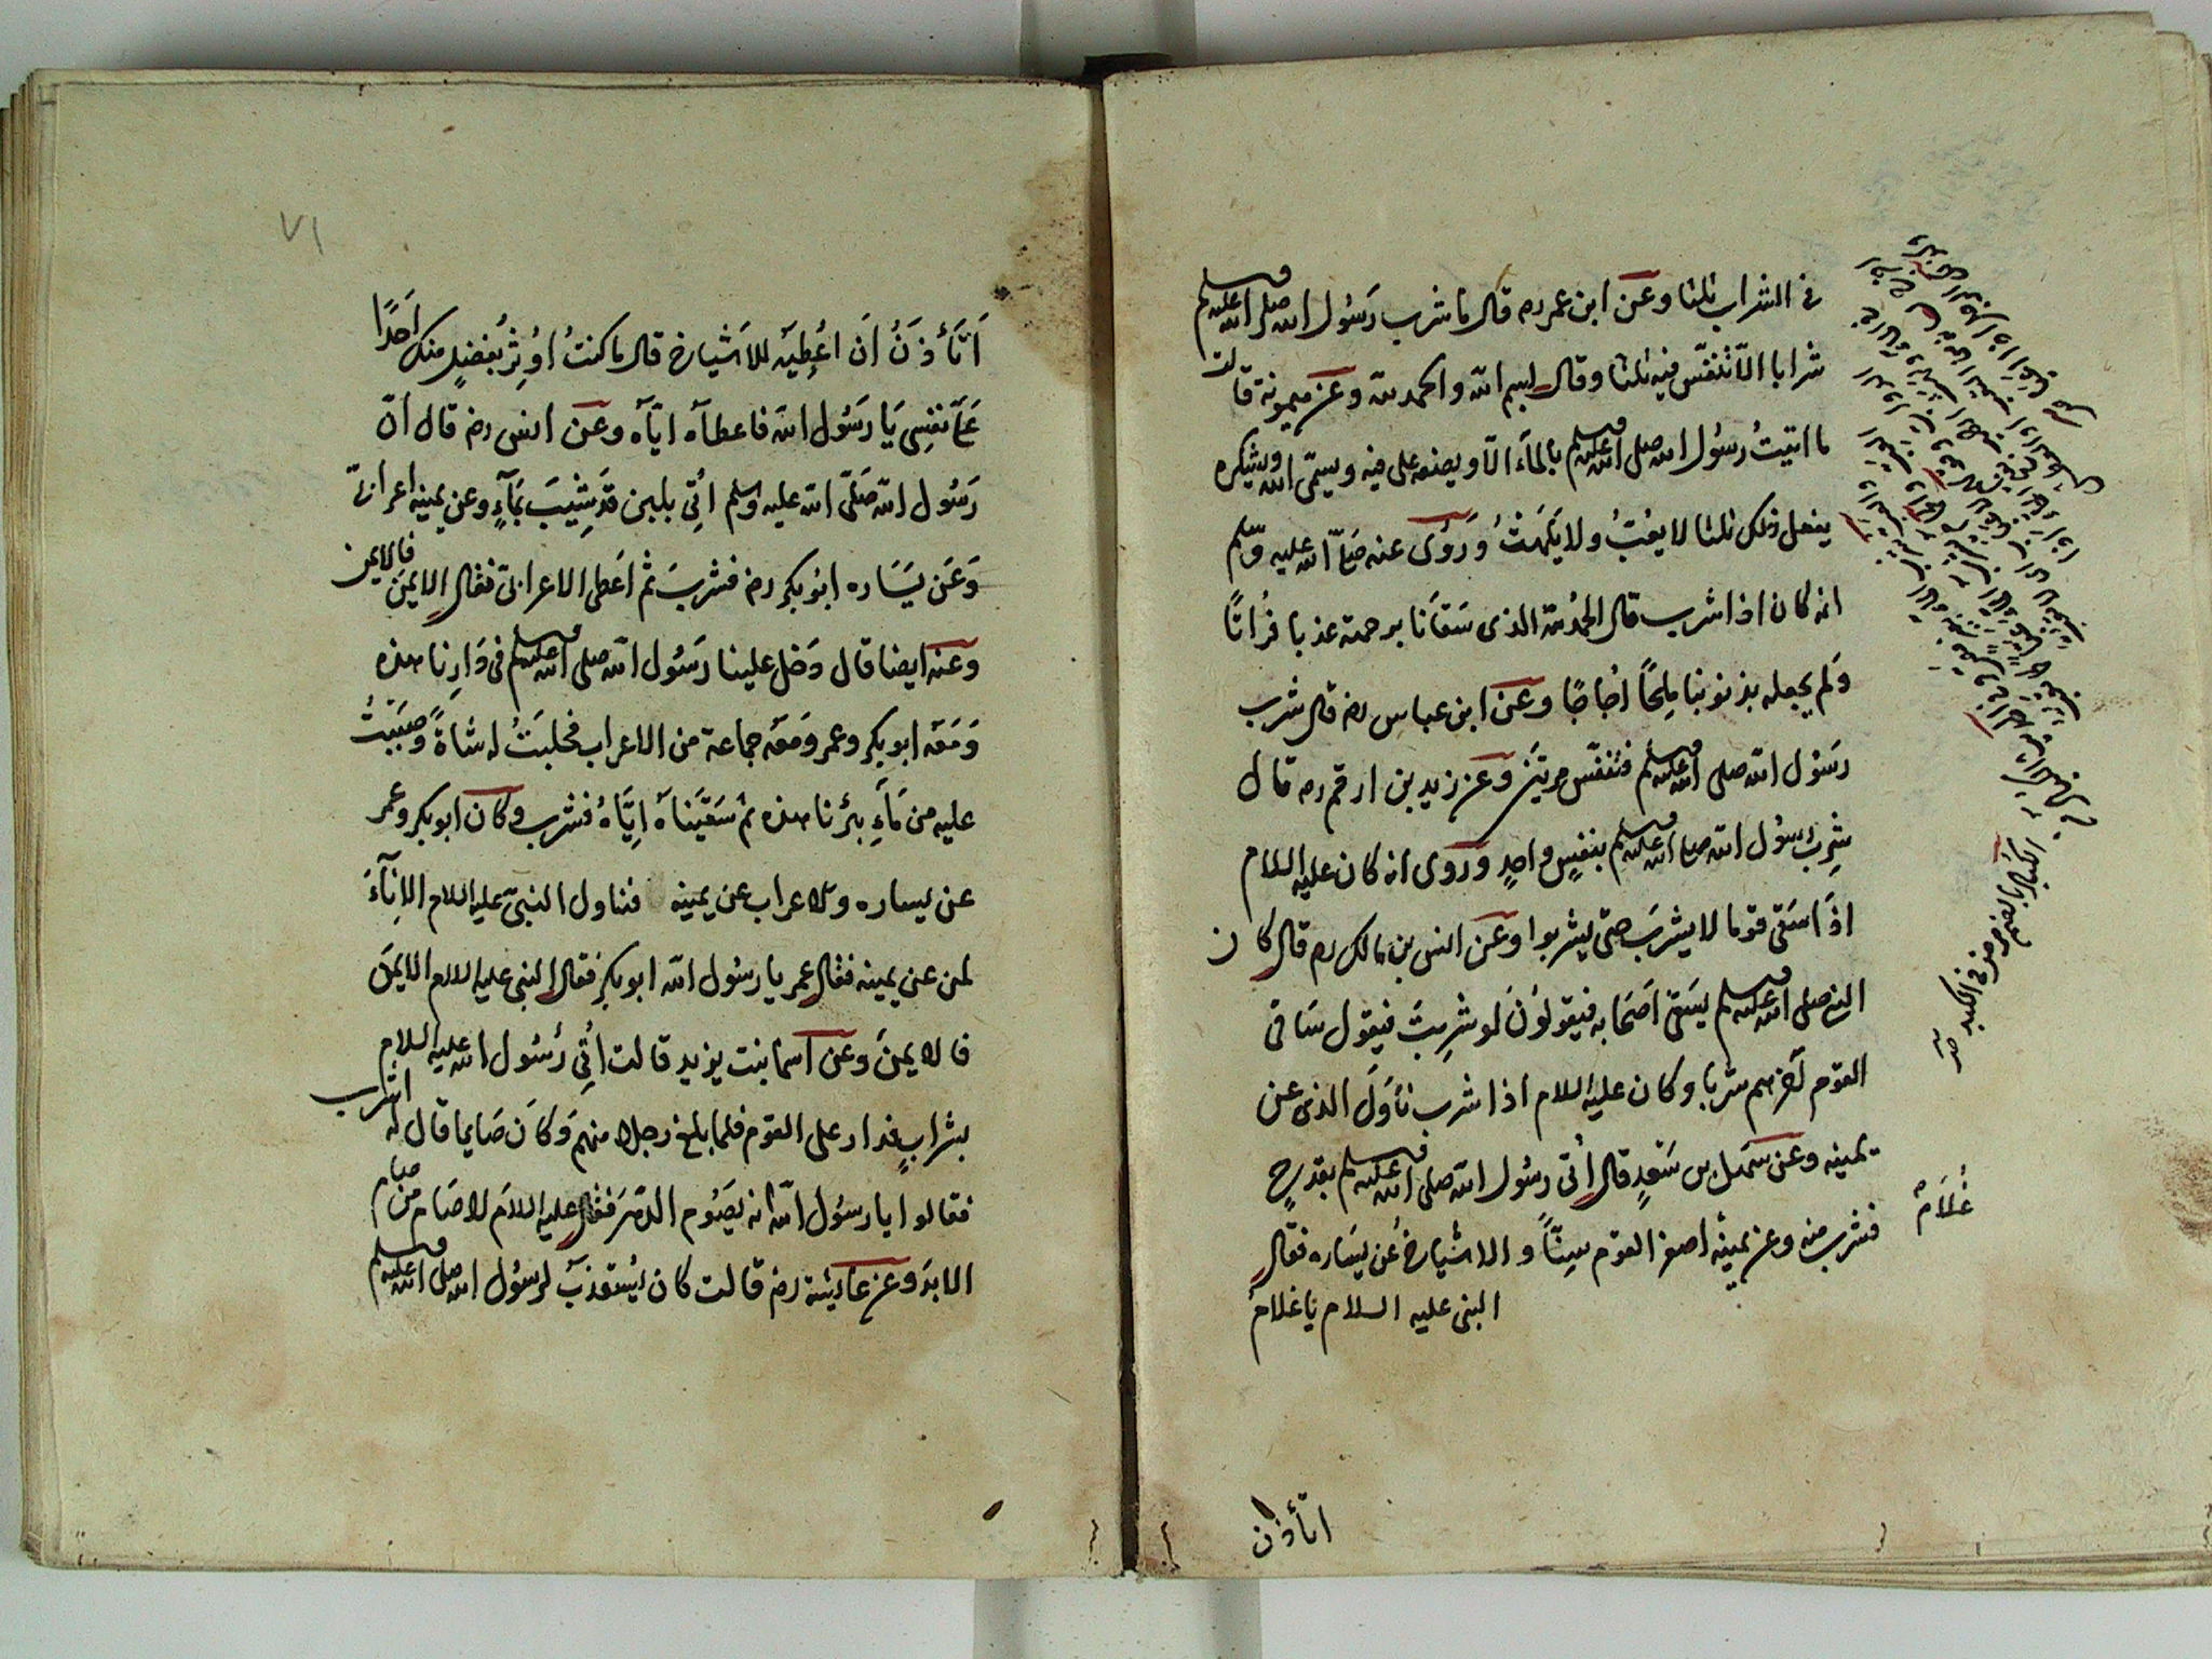 في الشراب ثلثا وعن ابن عمر رہ قال ما شرب رَسُول الله صلى الله عليه وسلم
شرابا الّا تنفّس فيه ثلثا وقال بسم الله والحمد لله وعن ميمونة قالت
ما اتيتُ رسُول الله صلى الله عليه وسلم بالماء الّا ويضعه على فيه ويسمّى الله ويشكره
يفعل ذلك ثلثا لا يعُبّ ولا يَلهَثُ وَرُوِى عنه صَلّى الله عليه وسلم
انه كان اذا شرب قال الحمدُ لله الذى سَقانا برحمته عذبا فُراتًا
وَلم يجعله بذنوبنا مِلحًا اُجاجًا وعن ابن عباس رض قال شرب
رسَول الله صلى الله عليه وسلم فتنفّس مرتيَن وعن زيد بن ارقم ره قال
شرِبَ رسُول الله صلى الله عليه وسلم بنفَسٍ واحدٍ وروى انه كان عليه السلام
اذَا سَقى قوما لا يشربَ حتى يشربوا وعن انس بن مالك ره قال كان
النبى صلى الله عليه وسلم يسَقى اَصَحَابه فيقولوُنَ لو شرِبتَ فيقول سَاقى
القوم آخرهم شربا وكان عليه السلام اذا شرب نَاوَلَ الذى عن
يمينه وعن سهل بن سَعدٍ قال اُتى رسُول الله صلى الله عليه وسلم بقدحٍ
فشرب منه وعن يمينه اصغر القوم سِنّاً والاشياخُ عَن يَسَاره فقال
غُلَامٌ
النبى عليه السلام يَا غلامُ
اتأذن
الكباد بالضم مرض فى الكبد
٧١
اَتَأذَنُ اَن اُعْطِيَه للاَشياخ قال ما كنتُ اُوثِرُ بفضلٍ منك اَحَدًا
عَلَى نفسِى يَا رَسُول الله فاعطاَه ايّاَه وعن انس رض قال انّ
رَسُول الله صَلّى الله عليه وسلم اُتِى بلبن قد شِيبَ بمَآءٍ وعن يمينه اعرابىّ
وَعَن يَسَاره ابوُبكر رض فشربَ ثم اَعطى الاعرابىّ فقال الايمن فالايمن
وعنه ايضا قال دَخل علينا رَسُول الله صلى الله عليه وسلم فى دَارِنا هذه
وَمَعَه ابو بكر وعمر وَمَعَه جماعة من الاعراب فحلبَتُ له شاةً وَصَبَبْتُ
عليه من مَآءِ بِئرنا هذه ثم سَقَيَناهُ اِيَّاهُ فشرب وكان ابو بكر وعمر
عن يساره والاعراب عن يمينه فناول النبىّ عليه السلام الاِنآءَ
لمن عن يمينه فقال عمر يا رسُول الله ابو بكر فقال النبى عليه السلام الايمَن
فالايمنَ وعن اَسمَا بنت يزيد قالت اُتِى رسُول الله عليه السلام
بشرابٍ فدار على القوم فلما بلغ رجلا منهم وَكانَ صَايما قال لَه اشرب
فقالوا يا رسُول الله انه يَصُوم الدّهرَ فقال عليه السلام لا صَام من صام
الابد وعن عَايشة رض قالت كان يُستعَذبُ لرسُول الله صلى الله عليه وسلم